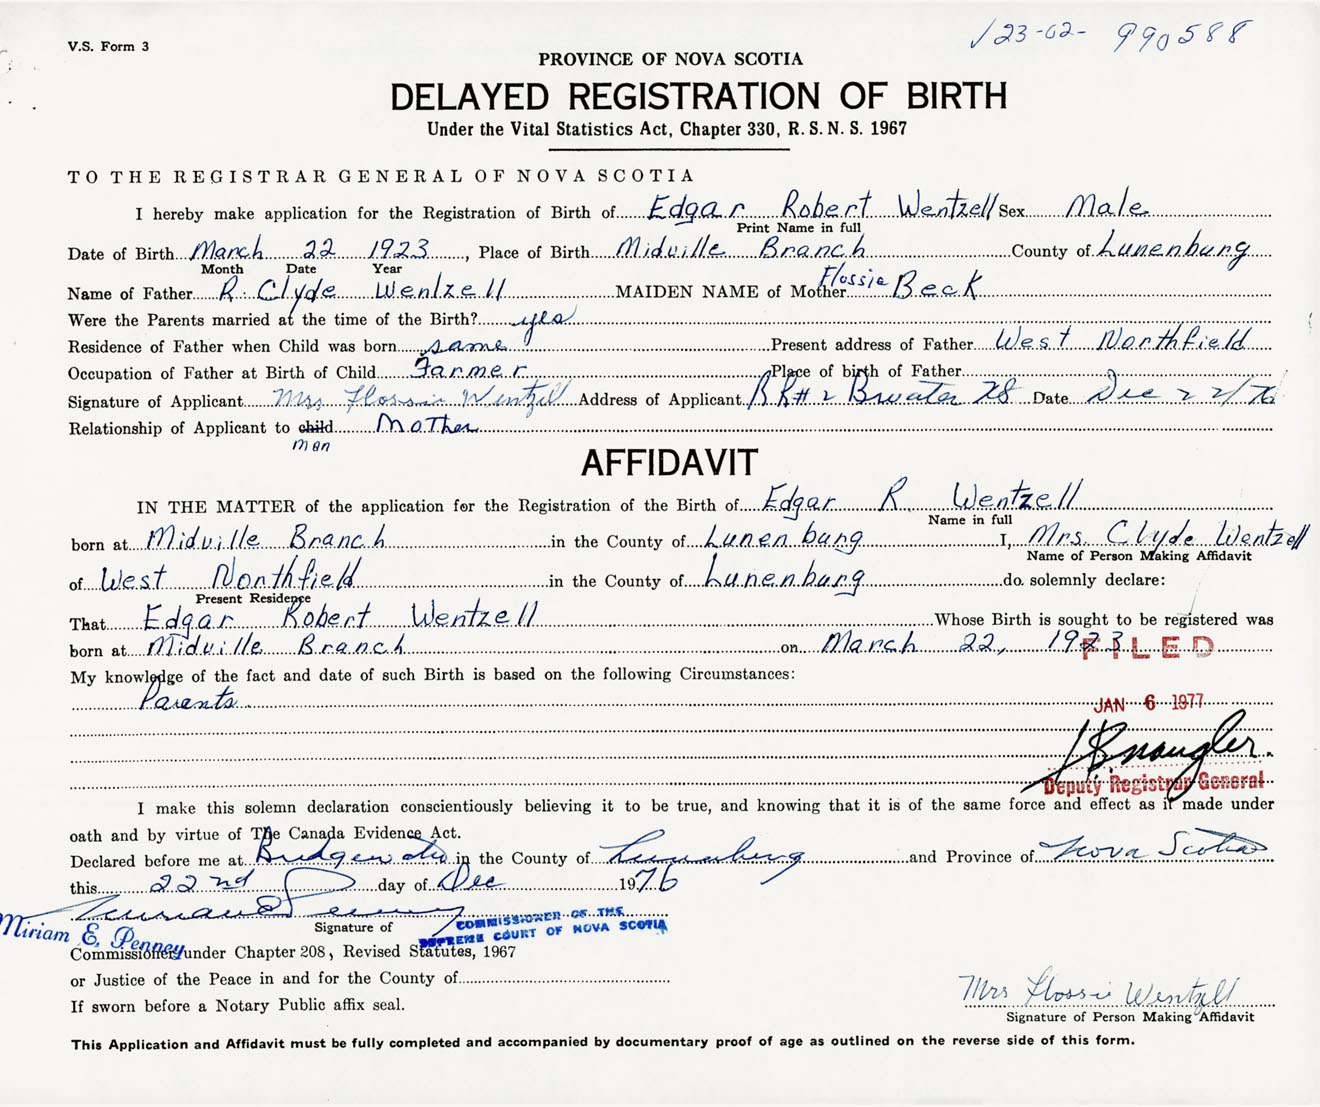 V.S. Form 3
123-02-990588
PROVINCE OF NOVA SCOTIA
DELAYED REGISTRATION OF BIRTH
Under the Vital Statistics Act, Chapter 330, R. S. N. S. 1967
TO THE REGISTRAR GENERAL OF NOVA SCOTIA
I hereby make application for the Registration of Birth of Edgar Robert Wentzell Sex Male
Print Name in full
Date of Birth March 22 1923, Place of Birth Midville Branch County of Lunenburg
Month Date Year
Name of Father R. Clyde Wentzell MAIDEN NAME of Mother Flossie Beck
Were the Parents married at the time of the Birth? yes
Residence of Father when Child was born same Present address of Father West Northfield
Occupation of Father at Birth of Child Farmer Place of birth of Father
Signature of Applicant Mrs Flossie Wentzell Address of Applicant RR# 2 Bwater NS Date Dec 22/76
Relationship of Applicant to child Mother
man
AFFIDAVIT
IN THE MATTER of the application for the Registration of the Birth of Edgar R Wentzell
Name in full
born at Midville Branch in the County of Lunenburg I, Mrs. Clyde Wentzell
Name of Person Making Affidavit
of West Northfield in the County of Lunenburg do solemnly declare:
Present Residence
That Edgar Robert Wentzell Whose Birth is sought to be registered was
born at Midville Branch on March 22, 1923
FILED
My knowledge of the fact and date of such Birth is based on the following Circumstances:
Parents
JAN 6 1977
Deputy Registrar General
I make this solemn declaration conscientiously believing it to be true, and knowing that it is of the same force and effect as if made under
oath and by virtue of The Canada Evidence Act.
Declared before me at Bridgewater in the County of Lunenburg and Province of Nova Scotia
this 22nd day of Dec 1976
Miriam E. Penney
Signature of
COMMISSIONER OF THE
SUPREME COURT OF NOVA SCOTIA
Miriam E. Penney
Commissioner under Chapter 208, Revised Statutes, 1967
or Justice of the Peace in and for the County of
If sworn before a Notary Public affix seal.
Mrs Flossie Wentzell
Signature of Person Making Affidavit
This Application and Affidavit must be fully completed and accompanied by documentary proof of age as outlined on the reverse side of this form.